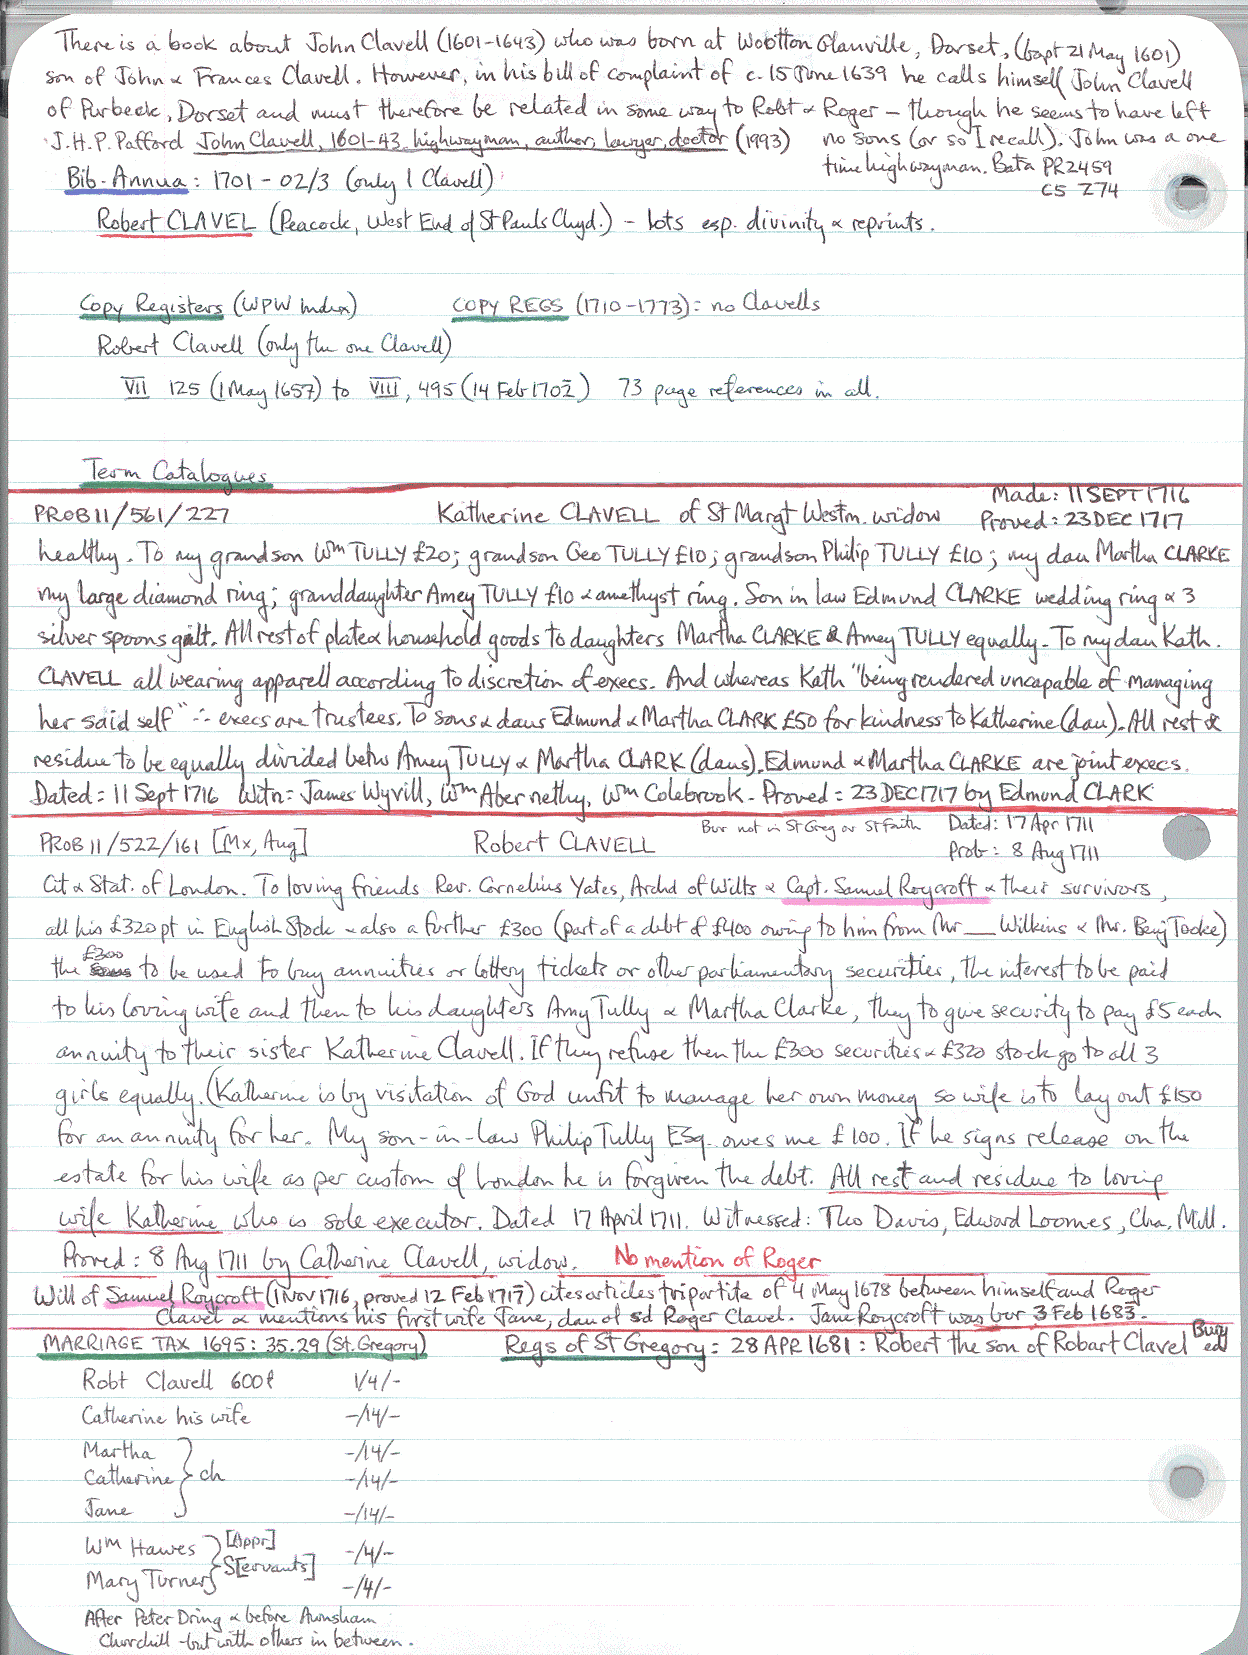 There is a book about John Clavell (1601-1643) who was born at Wootton Glanville, Dorset, (bapt 21 May 1601)
son of John & Frances Clavell. However, in his bill of complaint of c. 15 June 1639 he calls himself John Clavell
of Purbeck, Dorset and must therefore be related in some way to Robt & Roger - though he seems to have left
J.H.P. Pafford John Clavell, 1601-43 highwayman, author, lawyer, doctor (1993) no sons (or so I recall). John was a one
time highwayman. Bata PR2459
C5 Z74
Bib-Annua: 1701-02/3 (only 1 Clavell)
Robert CLAVEL (Peacock, West End of St Pauls Chyd.) - lots esp. divinity & reprints.
Copy Registers (WPW Index) COPY REGS (1710-1773): no Clavells
Robert Clavell (only the one Clavell)
VII 125 (1 May 1657) to VIII, 495 (14 Feb 1702) 73 page references in all.
Term Catalogues
Made: 11 SEPT 1716
PROB 11/561/227 Katherine CLAVELL of St Margt Westm. widow Proved: 23 DEC 1717
healthy. To my grandson Wm TULLY £20; grandson Geo TULLY £10; grandson Philip TULLY £10; my dau Martha CLARKE
my large diamond ring; granddaughter Amey TULLY £10 & amethyst ring. Son in law Edmund CLARKE wedding ring & 3
silver spoons gilt. All rest of plate & household goods to daughters Martha CLARKE & Amey TULLY equally. To my dau Kath.
CLAVELL all wearing apparell according to discretion of execs. And whereas Kath "being rendered uncapable of managing
her said self" ∴ execs are trustees. To sons & daus Edmund & Martha CLARK £50 for kindness to Katherine (dau). All rest &
residue to be equally divided betw Amey TULLY & Martha CLARK (daus). Edmund & Martha CLARKE are joint execs.
Dated: 11 Sept 1716 Witn: James Wyvill, Wm Abernethy, Wm Colebrook - Proved: 23 DEC 1717 by Edmund CLARK
Bur not in St Greg or St Faith Dated: 17 Apr 1711
PROB 11/522/161 [Mx, Aug] Robert CLAVELL Prob: 8 Aug 1711
Cit & Stat. of London. To loving friends Rev. Cornelius Yates, Archd of Wilts & Capt. Samuel Roycroft & their survivors,
all his £320 pt in English Stock - also a further £300 (part of a debt of £400 owing to him from Mr __ Wilkins & Mr. Benj Tooke)
£300
the to be used to buy annuities or lottery tickets or other parliamentary securities, the interest to be paid
to his loving wife and then to his daughters Amy Tully & Martha Clarke, they to give security to pay £5 each
annuity to their sister Katherine Clavell. If they refuse then the £300 securities & £320 stock go to all 3
girls equally. (Katherine is by visitation of God unfit to manage her own money so wife is to lay out £150
for an annuity for her. My son-in-law Philip Tully Esq. owes me £100. If he signs release on the
estate for his wife as per custom of London he is forgiven the debt. All rest and residue to loving
wife Katherine who is sole executor. Dated 17 April 1711. Witnessed: Theo Davis, Edward Loomes, Cha. Mill.
Proved: 8 Aug 1711 by Catherine Clavell, widow. No mention of Roger
Will of Samuel Roycroft (1 Nov 1716, proved 12 Feb 1717) cites articles tripartite of 4 May 1678 between himself and Roger
Clavel & mentions his first wife Jane, dau of sd Roger Clavel. Jane Roycroft was bur 3 Feb 1683.
MARRIAGE TAX 1695: 35.29 (St. Gregory) Regs of St Gregory: 28 APR 1681: Robert the son of Robart Clavel Buryed
Robt Clavell 600l 1/4/-
Catherine his wife -/14/-
Martha -/14/-
Catherine } ch -/14/-
Jane -/14/-
Wm Hawes [Appr] -/4/-
Mary Turner } S[ervants] -/4/-
After Peter Dring & before Awnsham
Churchill - but with others in between.